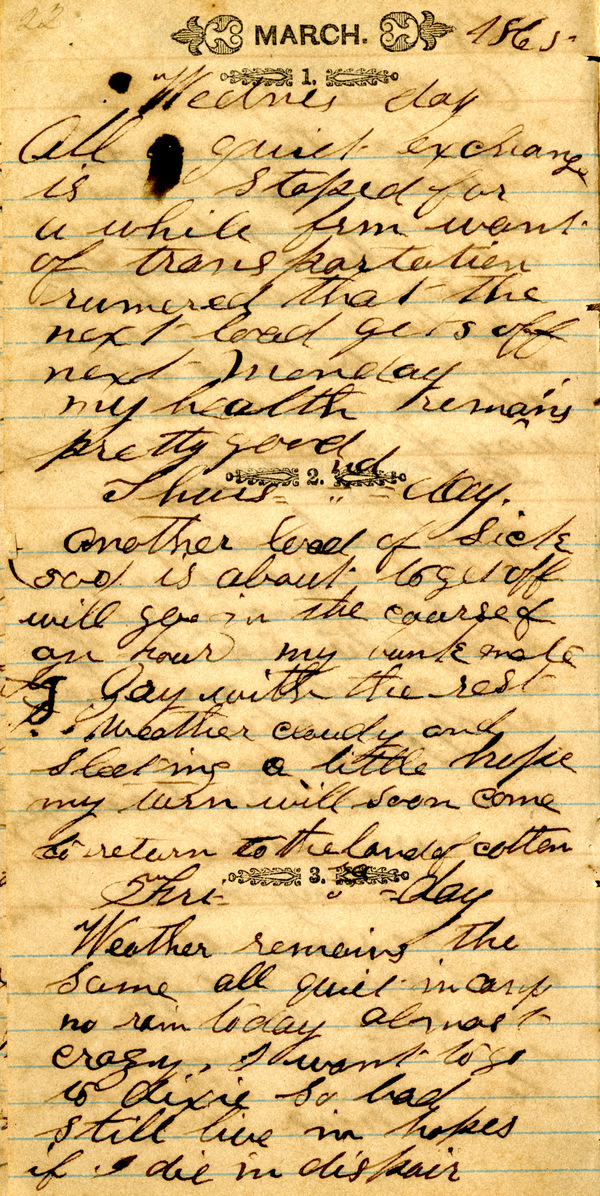 22
MARCH. 1865
1.
Wednes day
All quiet exchange
is stoped for
a while frm want
of transportation
rumered that the
next load gets off
next Monday
my health remains
pretty good
2. nd
Thurs = " = day.
another load of Sick
is about to get off
will go in the course of
an hour my bunk mate
J Gay with the rest
Weather cloudy and
sleeting a little hope
my turn will soon come
to return to the land of cotten
3. rd
Fri- " = day
Weather remains the
same all quiet in camp
no rain today almost
crazy, I want to go
to dixie so bad
still live in hopes
if I die in dispair